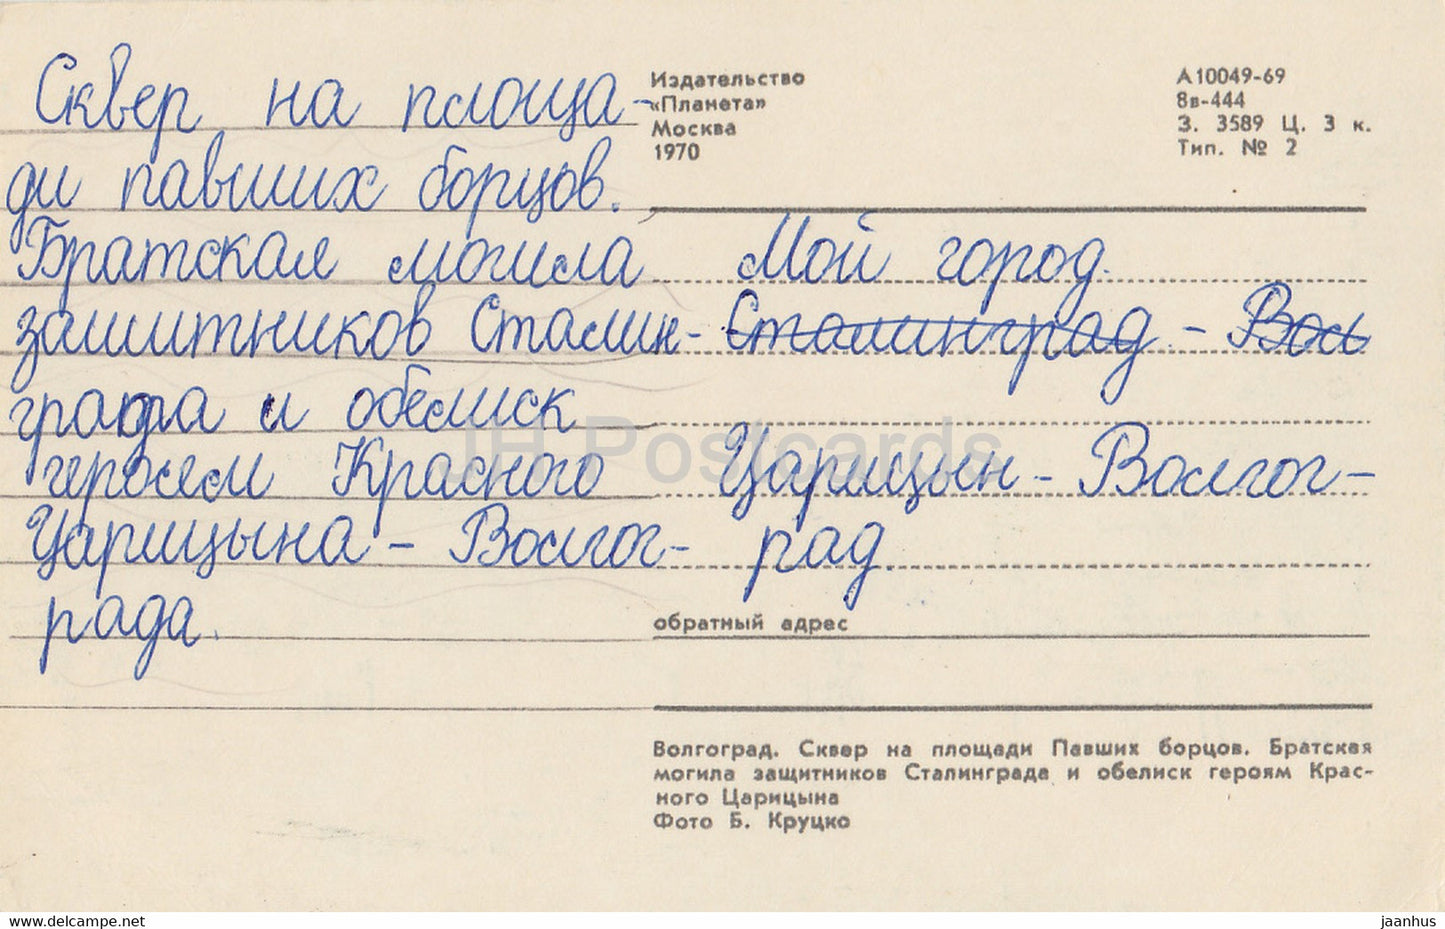 Сквер на площа-
ди павших борцов.
Братская могила
защитников Сталин-
града и обелиск
героем Красного
Царицына - Волгог-
рада.
Издательство
«Планета»
Москва
1970
А10049-69
8в-444
З. 3589 Ц. 3 к.
Тип. № 2
Мой город.
Сталинград - Вол
Царицын - Волгог-
рад.
обратный адрес
Волгоград. Сквер на площади Павших борцов. Братская
могила защитников Сталинграда и обелиск героям Крас-
ного Царицына
Фото Б. Круцко
JH Postcards
www.delcampe.net
jaanhus